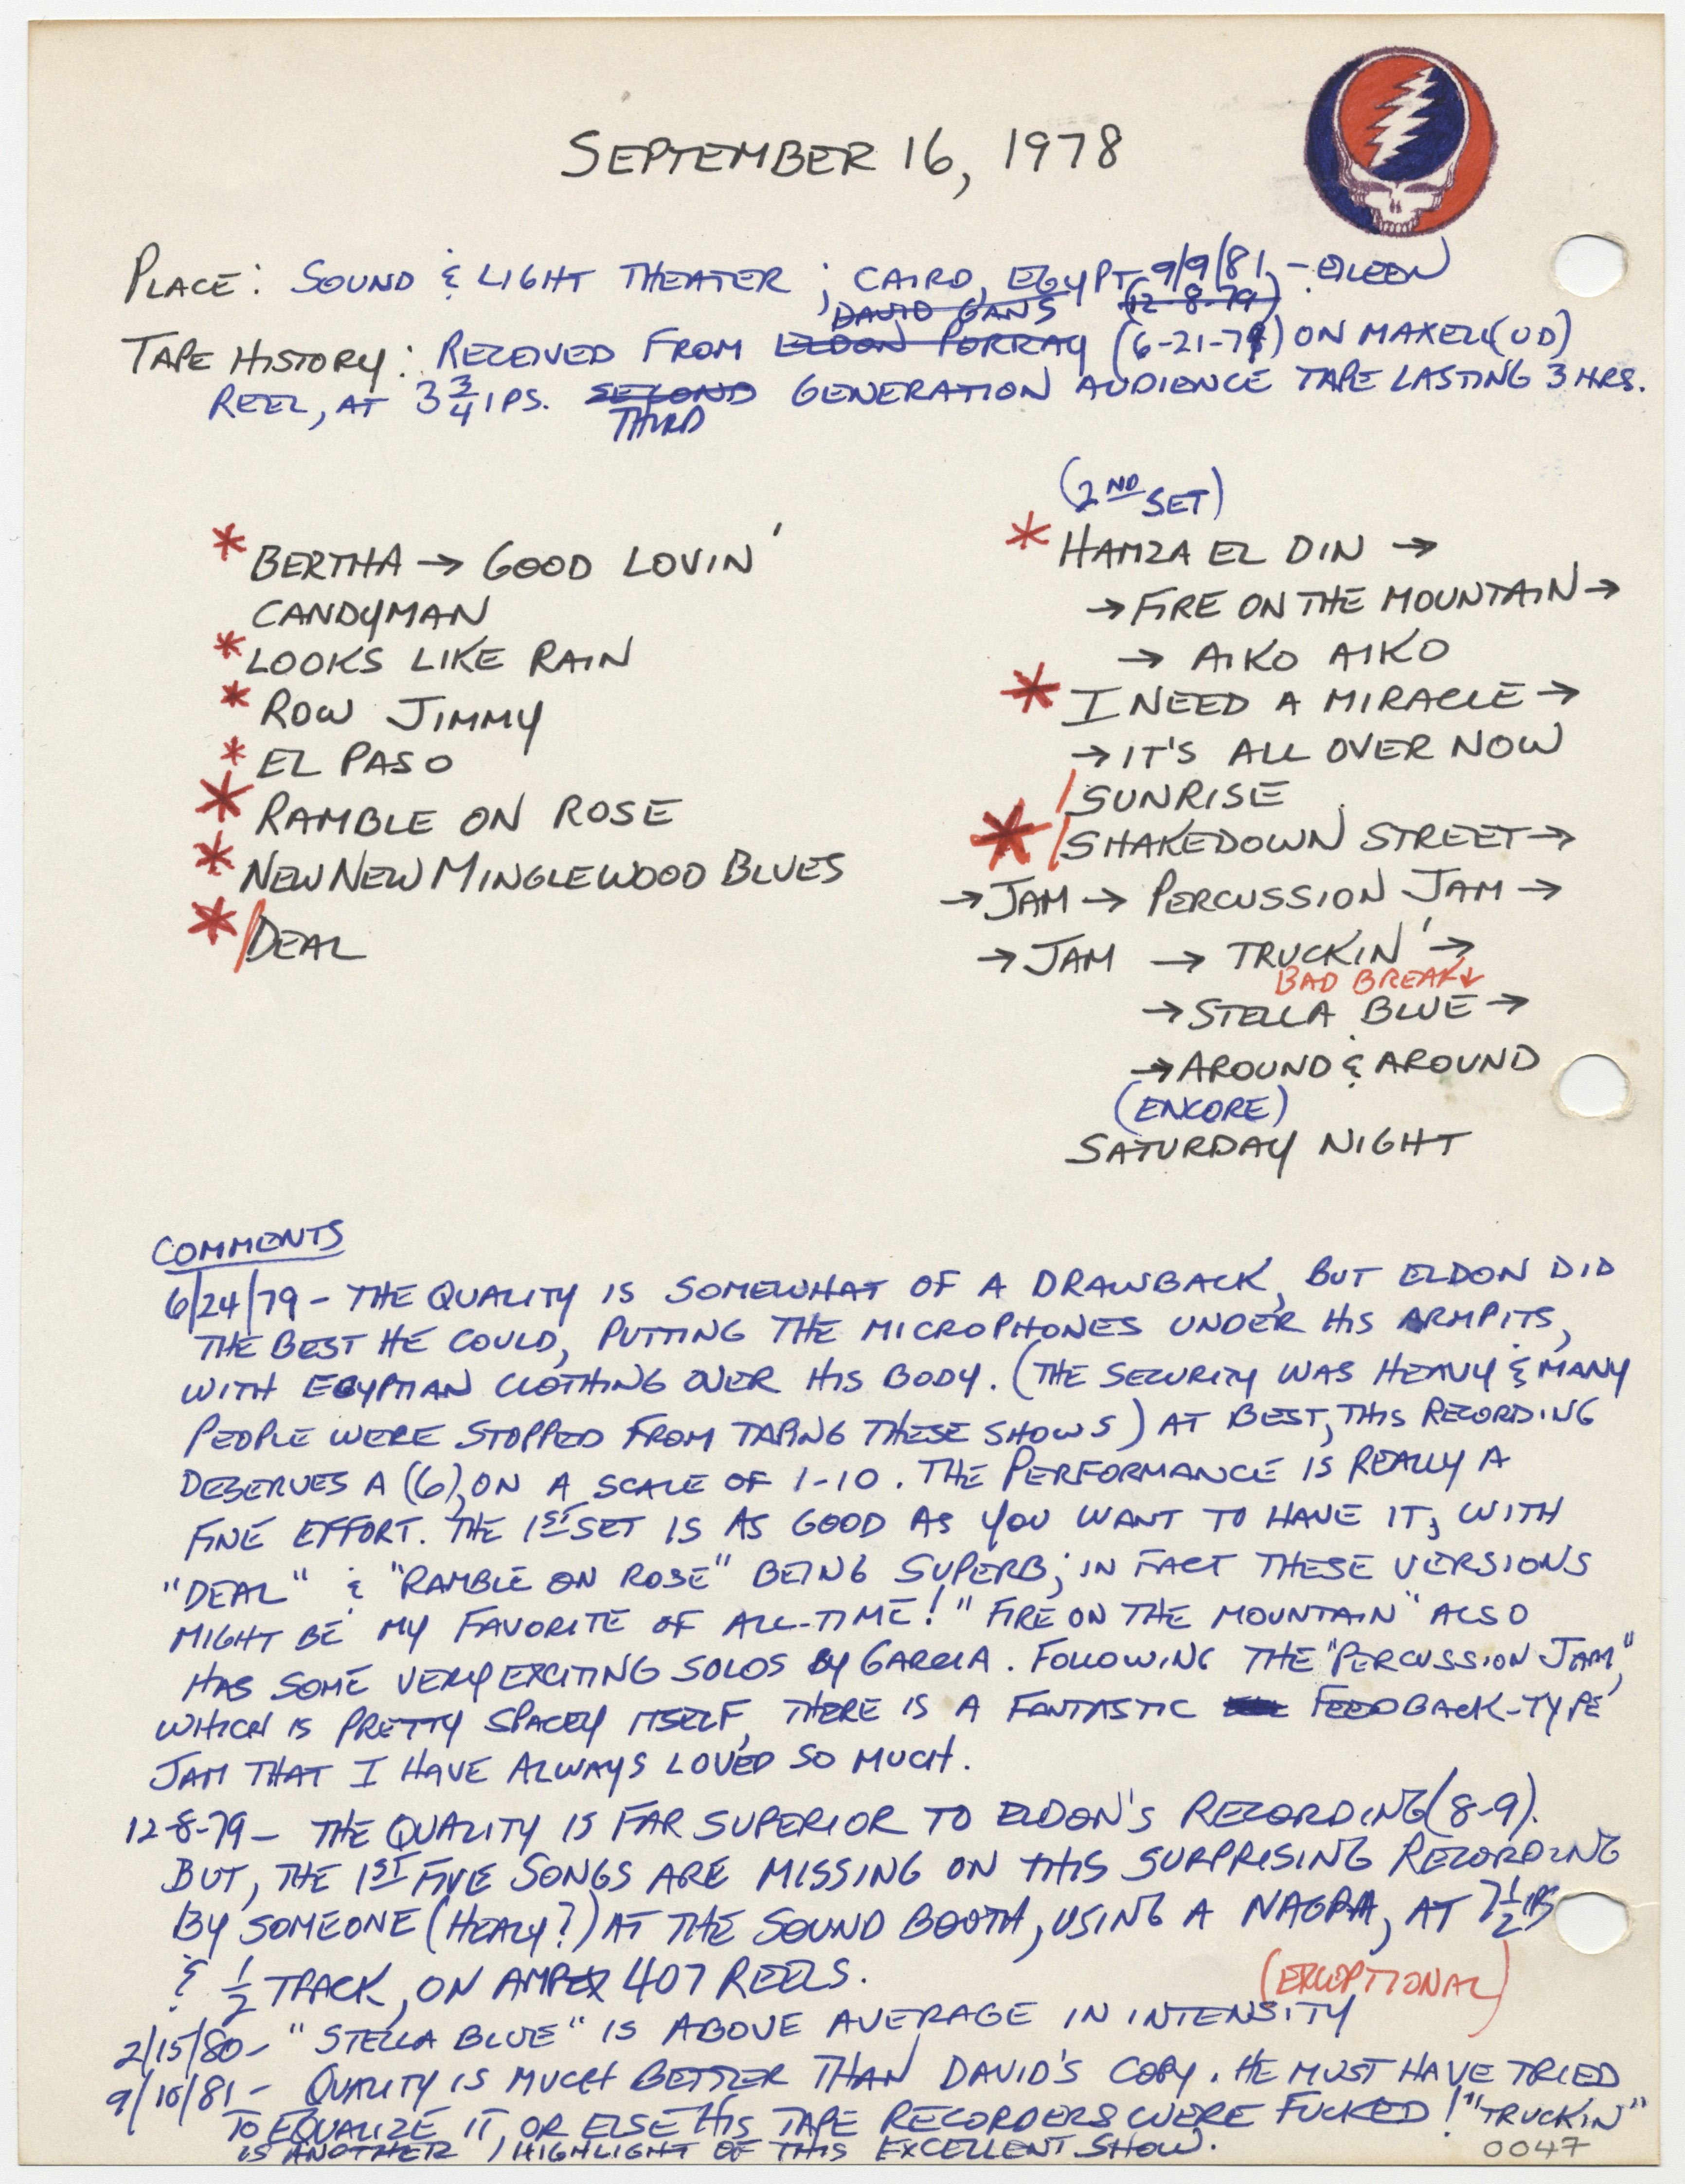 SEPTEMBER 16, 1978
PLACE: SOUND & LIGHT THEATER; CAIRO, EGYPT 9/9/81 - EILEEN
DAVID GANS (12-8-79)
TAPE HISTORY: RECEIVED FROM ELDON PORRAY (6-21-79) ON MAXELL (UD)
REEL, AT 3 3/4 IPS. SECOND GENERATION AUDIENCE TAPE LASTING 3 HRS.
THIRD
* BERTHA → GOOD LOVIN'
CANDYMAN
* LOOKS LIKE RAIN
* ROW JIMMY
* EL PASO
* RAMBLE ON ROSE
* NEW NEW MINGLEWOOD BLUES
* / DEAL
(2ND SET)
* HAMZA EL DIN →
→ FIRE ON THE MOUNTAIN →
→ AIKO AIKO
* I NEED A MIRACLE →
→ IT'S ALL OVER NOW
/ SUNRISE
* / SHAKEDOWN STREET →
→ JAM → PERCUSSION JAM →
→ JAM → TRUCKIN' →
BAD BREAK ↓
→ STELLA BLUE →
→ AROUND & AROUND
(ENCORE)
SATURDAY NIGHT
COMMENTS
6/24/79 - THE QUALITY IS SOMEWHAT OF A DRAWBACK, BUT ELDON DID
THE BEST HE COULD, PUTTING THE MICROPHONES UNDER HIS ARMPITS,
WITH EGYPTIAN CLOTHING OVER HIS BODY. (THE SECURITY WAS HEAVY & MANY
PEOPLE WERE STOPPED FROM TAPING THESE SHOWS) AT BEST, THIS RECORDING
DESERVES A (6), ON A SCALE OF 1-10. THE PERFORMANCE IS REALLY A
FINE EFFORT. THE 1ST SET IS AS GOOD AS YOU WANT TO HAVE IT, WITH
"DEAL" & "RAMBLE ON ROSE" BEING SUPERB; IN FACT THESE VERSIONS
MIGHT BE MY FAVORITE OF ALL-TIME! "FIRE ON THE MOUNTAIN" ALSO
HAS SOME VERY EXCITING SOLOS BY GARCIA. FOLLOWING THE "PERCUSSION JAM,"
WHICH IS PRETTY SPACEY ITSELF, THERE IS A FANTASTIC FEEDBACK-TYPE
JAM THAT I HAVE ALWAYS LOVED SO MUCH.
12-8-79 - THE QUALITY IS FAR SUPERIOR TO ELDON'S RECORDING (8-9).
BUT, THE 1ST FIVE SONGS ARE MISSING ON THIS SURPRISING RECORDING
BY SOMEONE (HEALY?) AT THE SOUND BOOTH, USING A NAGRA, AT 7 1/2 IPS
& 1/2 TRACK, ON AMPEX 407 REELS.
(EXCEPTIONAL)
2/15/80 - "STELLA BLUE" IS ABOVE AVERAGE IN INTENSITY
9/10/81 - QUALITY IS MUCH BETTER THAN DAVID'S COPY. HE MUST HAVE TRIED
TO EQUALIZE IT, OR ELSE HIS TAPE RECORDERS WERE FUCKED! "TRUCKIN"
IS ANOTHER HIGHLIGHT OF THIS EXCELLENT SHOW.
0047